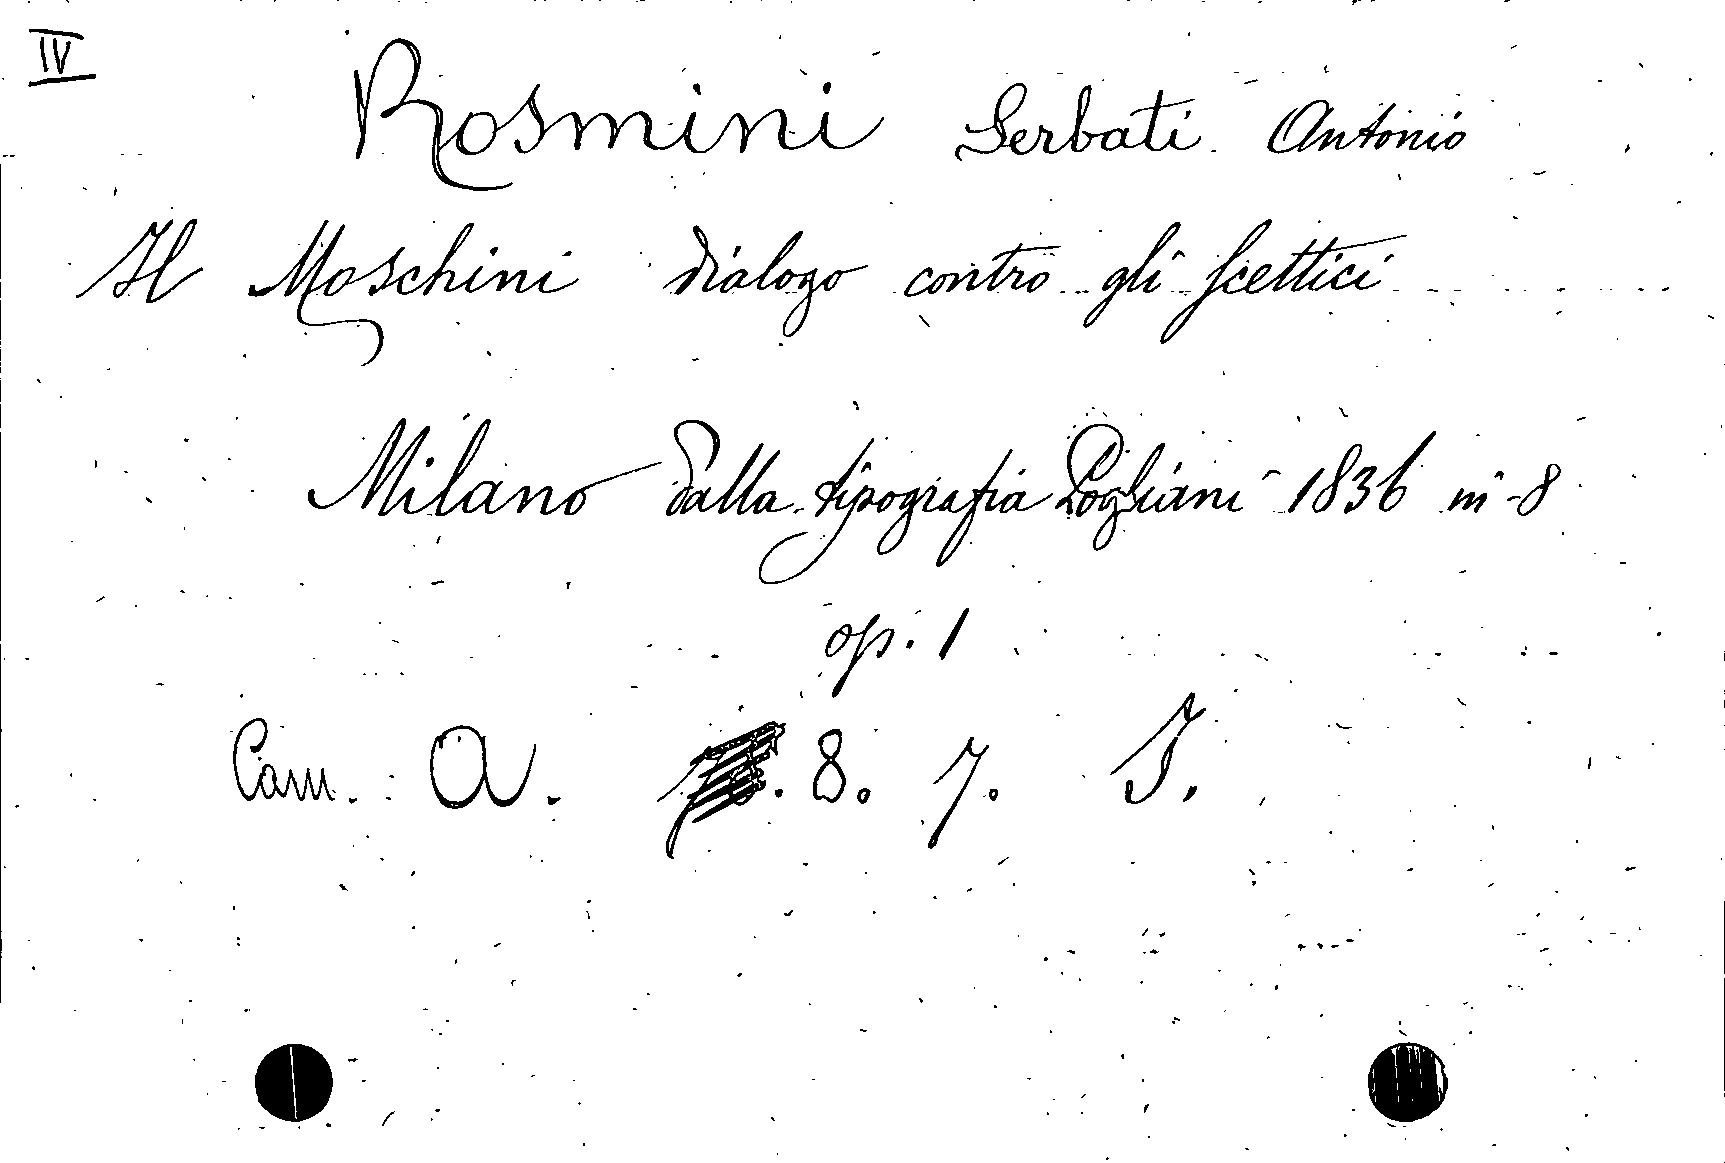 IV
Rosmini Serbati Antonio
Il Moschini dialogo contro gli scettici
Milano dalla tipografia Pogliani 1836 in-8
op. 1
Cam. A. 8. 7. I.